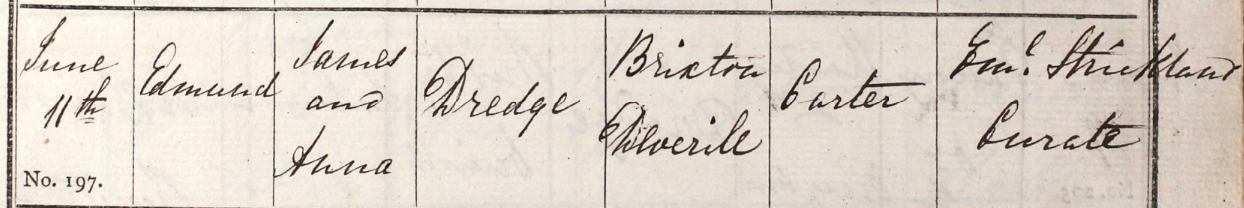 June
11th
No. 197.
Edmund
James
and
Anna
Dredge
Brixton
Deverill
Carter
Eml. Strickland
Curate